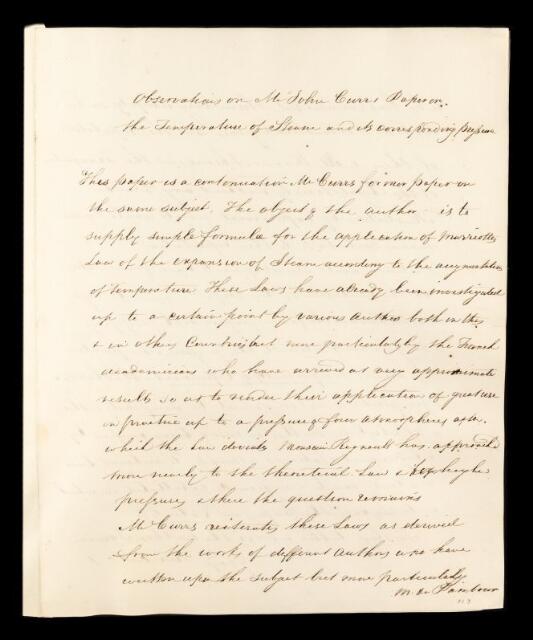 Observations on Mr John Currs Paper on
the Temperature of Steam and its corresponding pressure
This paper is a contenuation Mr Currs former paper on
the same subject. The object of the author is to
supply simple formula for the application of Marriotts
Law of the expansion of Steam according to the augmentation
of temperature These Laws have already been investigated
up to a certain point by various Authors both in this
& in other Countries but more particularly by the French
academicians who have arrived at very approximate
results so as to render their application of great use
in practice up to a pressure of four atmospheres after
which the Law deviates Monsair Regnault has approached
more nearly to the theoretical Law & higher
pressures & there the question remains
Mr Currs reiterates these Laws as derived
from the works of different Authors who have
written upon the subject but more particularly
M. de Pambour